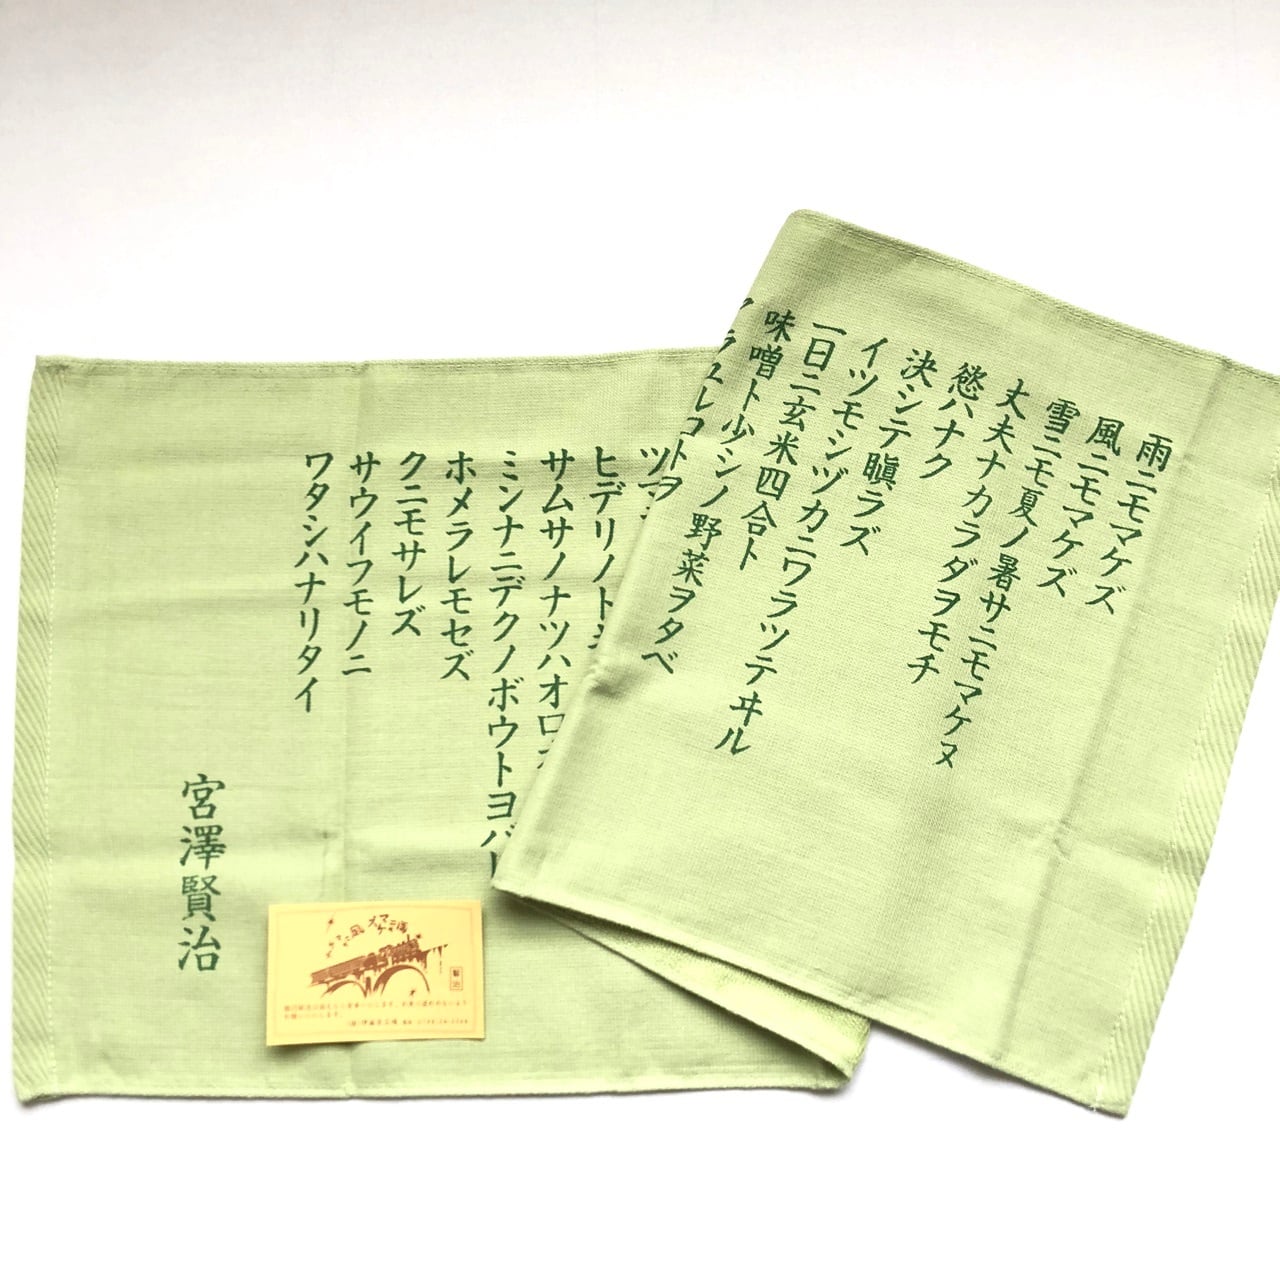 雨ニモマケズ
風ニモマケズ
雪ニモ夏ノ暑サニモマケヌ
丈夫ナカラダヲモチ
慾ハナク
決シテ瞋ラズ
イツモシヅカニワラツテヰル
一日ニ玄米四合ト
味噌ト少シノ野菜ヲタベ
ラユルコトヲ
ヒデリノト
サムサノナツハオロ
ミンナニデクノボウトヨバ
ホメラレモセズ
クニモサレズ
サウイフモノニ
ワタシハナリタイ
宮澤賢治